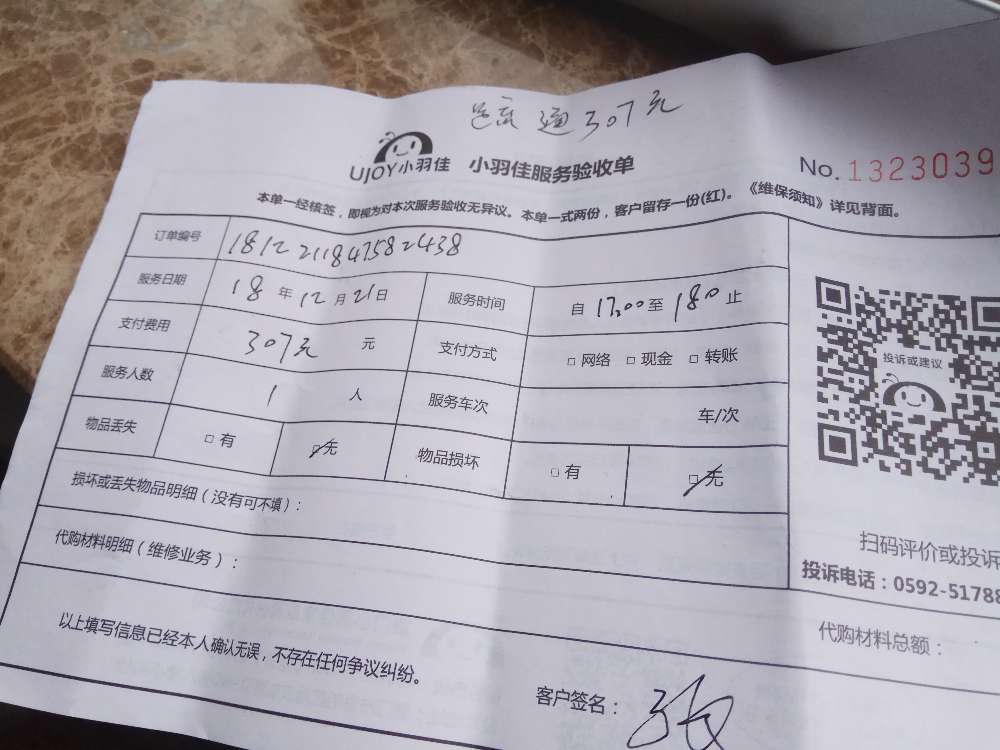 通307元
UJOY小羽佳 小羽佳服务验收单 No.1323039
本单一经核签，即视为对本次服务验收无异议。本单一式两份，客户留存一份(红)。《维保须知》详见背面。
订单编号 181221184758 2438
服务日期 18 年 12 月 21 日 服务时间 自 17:00 至 18:0 止
支付费用 307元 元 支付方式 □ 网络 □ 现金 □ 转账
服务人数 1 人 服务车次 车/次
物品丢失 □ 有 □ 无 物品损坏 □ 有 □ 无
损坏或丢失物品明细（没有可不填）：
代购材料明细（维修业务）：
以上填写信息已经本人确认无误，不存在任何争议纠纷。
客户签名：
投诉或建议
扫码评价或投诉
投诉电话：0592-51788
代购材料总额：